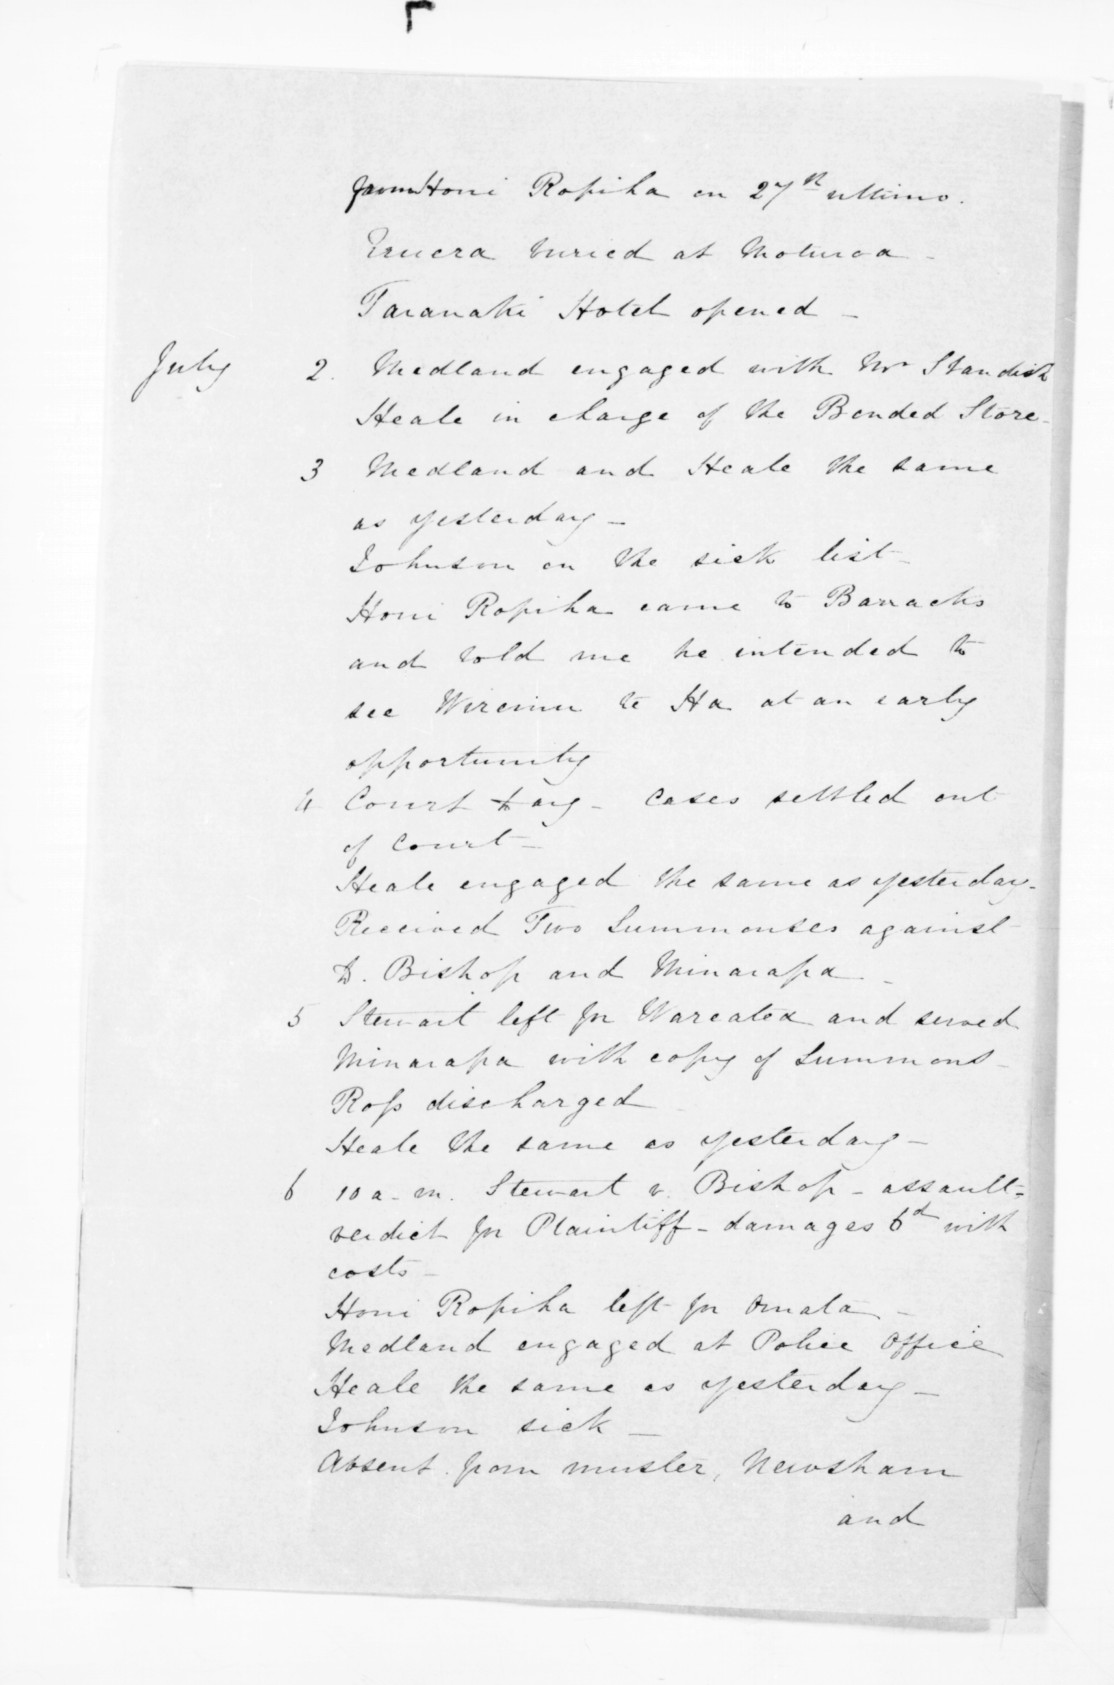 from Honi Ropiha on 27th ultimo.
Eruera buried at Moturoa -
Taranaki Hotel opened -
July 2. Medland engaged with Mr Standish
Heale in charge of the Bonded Store -
3 Medland and Heale the same
as yesterday -
Johnson on the sick list -
Honi Ropiha came to Barracks
and told me he intended to
see Wiremu te Ha at an early
opportunity
4 Court day - Cases settled out
of Court -
Heale engaged the same as yesterday -
Received Two Summonses against
D. Bishop and Minarapa -
5 Stewart left for Wareatea and served
Minarapa with copy of Summons -
Ross discharged
Heale the same as yesterday -
6 10 a.m. Stewart v. Bishop - assault -
verdict for Plaintiff - damages 6d with
costs -
Honi Ropiha left for Omata -
Medland engaged at Police Office
Heale the same as yesterday -
Johnson sick -
Absent from muster, Newsham
and